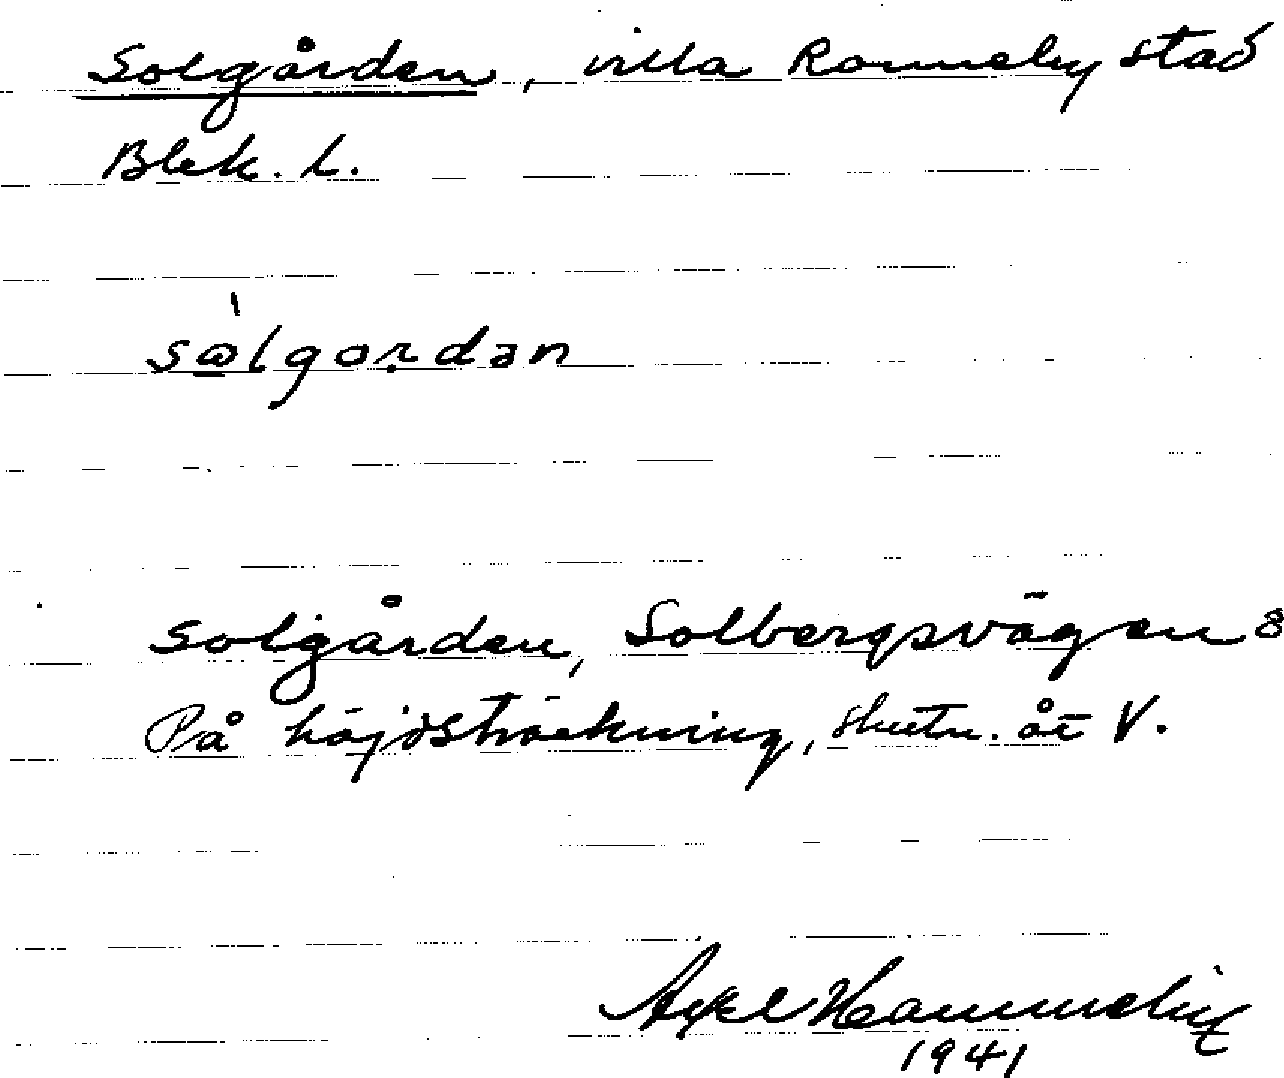 Solgården, villa Ronneby stad
Blek. l.
sålgordən
Solgården, Solbergsvägen 8
På höjdsträckning, slutn. åt V.
Axel Hammelin
1941